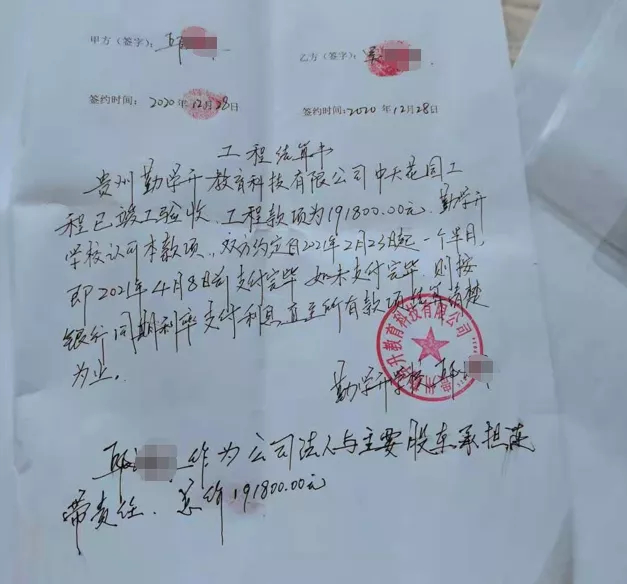 甲方（签字）：
乙方（签字）：
签约时间：2020年12月28日
签约时间：2020年12月28日
工程结算书
贵州勤学升教育科技有限公司中大花园工
程已竣工验收，工程款项为191800.00元，勤学升
学校认可本款项，双方约定自2021年2月23日起一个半月，
即2021年4月8日前支付完毕，如未支付完毕，则按
银行同期利率支付利息直至所有款项结算清楚
为止。
升教育科技有限公司
勤学升学校
作为公司法人与主要股东承担连
带责任，总价191800.00元